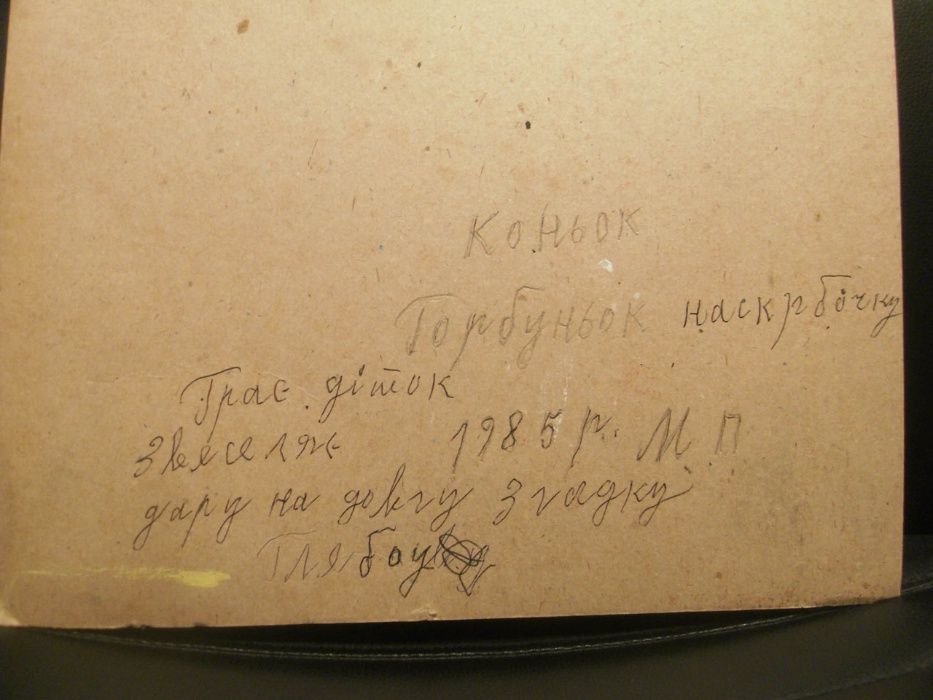 Коньок
Горбуньок наскрбочку
Грає діток
Звеселяє 1985 р. М П
дару на довгу згадку